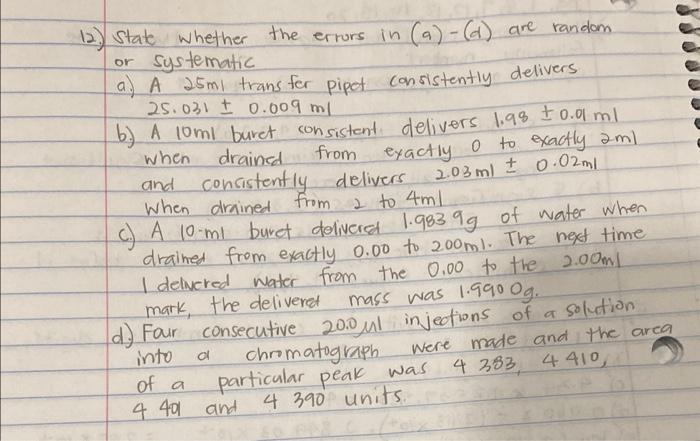 12) State whether the errors in (a)-(d) are random
or systematic
a) A 25ml transfer pipet consistently delivers
25.031 ± 0.009 ml
b) A 10ml buret consistent delivers 1.98 ± 0.01 ml
when drained from exactly 0 to exactly 2ml
and consistently delivers 2.03ml ± 0.02ml
when drained from 2 to 4ml
c) A 10-ml buret delivered 1.9839g of water when
drained from exactly 0.00 to 200ml. The next time
I delivered water from the 0.00 to the 2.00ml
mark, the delivered mass was 1.9900g.
d) Four consecutive 20.0 µl injections of a solution
into a chromatograph were made and the area
of a particular peak was 4 383, 4 410,
4 401 and 4 390 units.